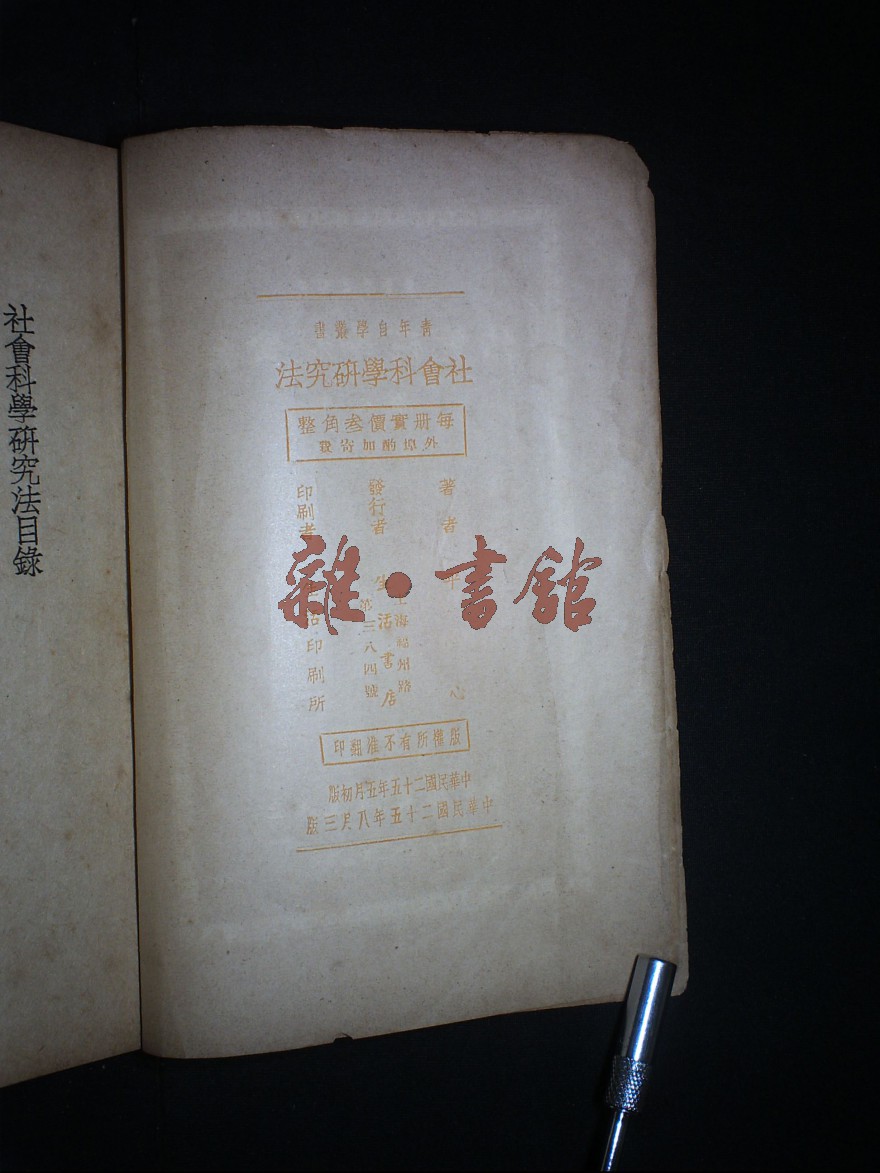 青年自學叢書
社會科學研究法
每册實價叁角整
外埠酌加寄費
著者 平心
發行者 生活書店
上海福州路
第三八四號
印刷者 生活印刷所
版權所有不准翻印
中華民國二十五年五月初版
中華民國二十五年八月三版
社會科學研究法目錄
雜·書館